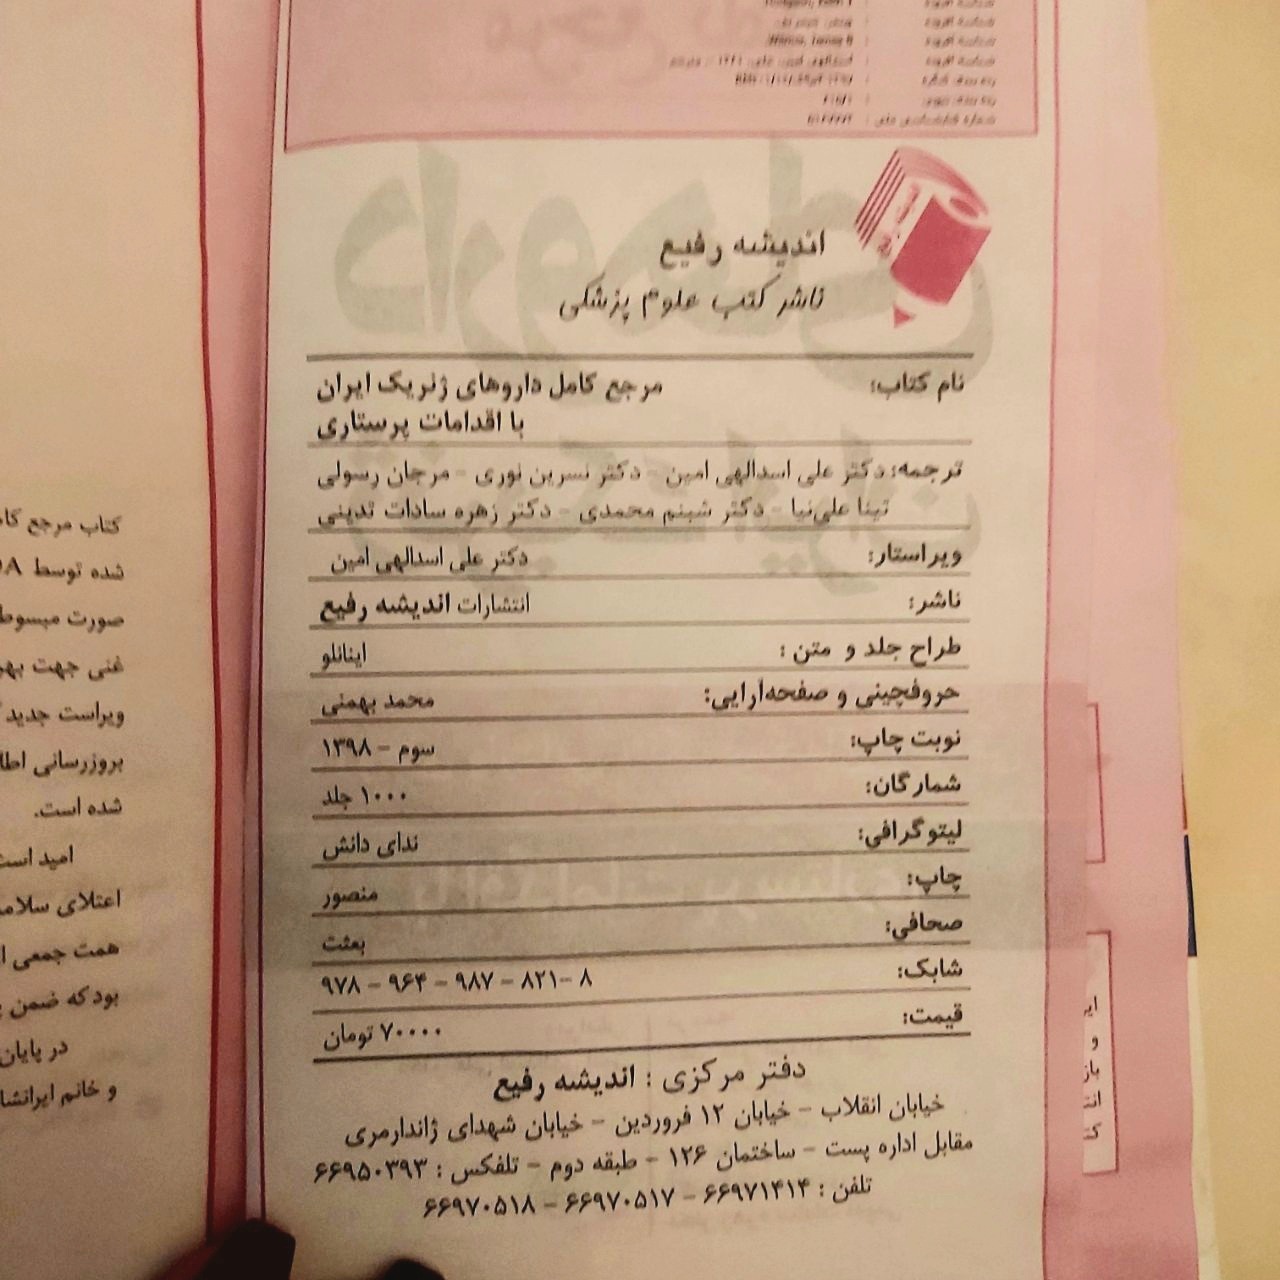 شناسه افزوده :
شناسه افزوده :
شناسه افزوده :
شناسه افزوده : اسدالهی امین، علی، ۱۳۴۱ -، مترجم
رده بندی کنگره :
رده بندی دیویی :
شماره کتابشناسی ملی :
اندیشه رفیع
ناشر کتب علوم پزشکی
نام کتاب: مرجع کامل داروهای ژنریک ایران
با اقدامات پرستاری
ترجمه: دکتر علی اسدالهی امین - دکتر نسرین نوری - مرجان رسولی
تینا علی‌نیا - دکتر شبنم محمدی - دکتر زهره سادات تدینی
ویراستار: دکتر علی اسدالهی امین
ناشر: انتشارات اندیشه رفیع
طراح جلد و متن : اینانلو
حروفچینی و صفحه‌آرایی: محمد بهمنی
نوبت چاپ: سوم - ۱۳۹۸
شمارگان: ۱۰۰۰ جلد
لیتوگرافی: ندای دانش
چاپ: منصور
صحافی: بعثت
شابک: ۹۷۸ - ۹۶۴ - ۹۸۷ - ۸۲۱ - ۸
قیمت: ۷۰۰۰۰ تومان
دفتر مرکزی : اندیشه رفیع
خیابان انقلاب - خیابان ۱۲ فروردین - خیابان شهدای ژاندارمری
مقابل اداره پست - ساختمان ۱۲۶ - طبقه دوم - تلفکس : ۶۶۹۵۰۳۹۳
تلفن : ۶۶۹۷۱۴۱۴ - ۶۶۹۷۰۵۱۷ - ۶۶۹۷۰۵۱۸
کتاب مرجع
شده توسط
صورت مبسوط
غنی جهت
ویراست جدید
بروزرسانی
شده است.
امید است
اعتلای
همت جمعی
بود که ضمن
در پایان
و خانم